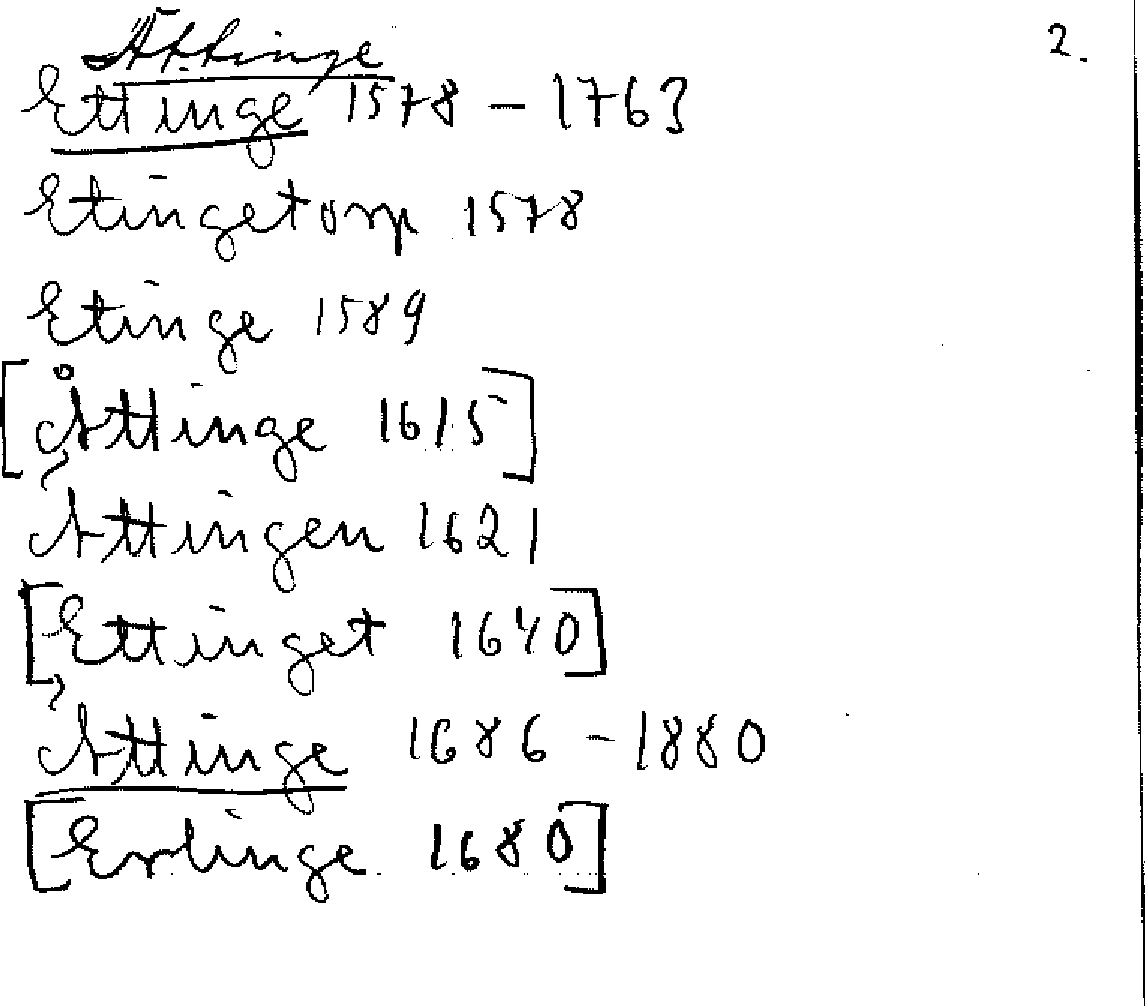 Ättinge 2.
Ettinge 1578 – 1763
Etingetorp 1578
Etinge 1589
[Åttinge 1615]
Ättingen 1621
[Ettinget 1640]
Ättinge 1686 – 1880
[Erlinge 1680]